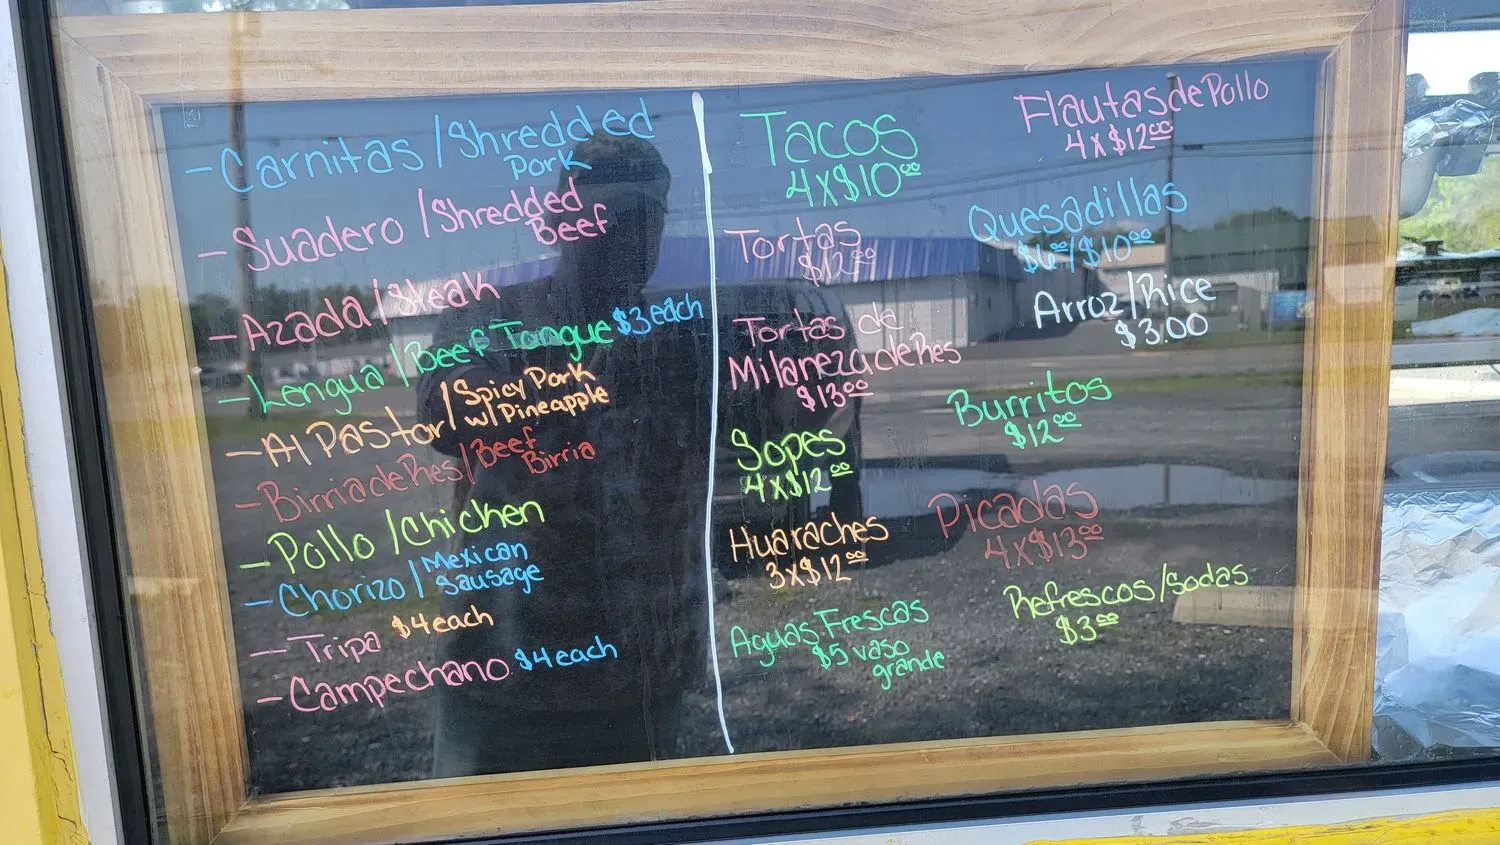 - Carnitas / Shredded
Pork
- Suadero / Shredded
Beef
- Azada / Steak
- Lengua / Beef Tongue $3 each
- Al Pastor / Spicy Pork
w/ Pineapple
- Birria de Res / Beef
Birria
- Pollo / Chicken
- Chorizo / Mexican
Sausage
- Tripa $4 each
- Campechano $4 each
Tacos
4 x $10.00
Tortas
$12.00
Tortas de
Milaneza de Res
$13.00
Sopes
4 x $12.00
Huaraches
3 x $12.00
Aguas Frescas
$5 vaso
grande
Flautas de Pollo
4 x $12.00
Quesadillas
$6.00 / $10.00
Arroz / Rice
$3.00
Burritos
$12.00
Picadas
4 x $13.00
Refrescos / Sodas
$3.00